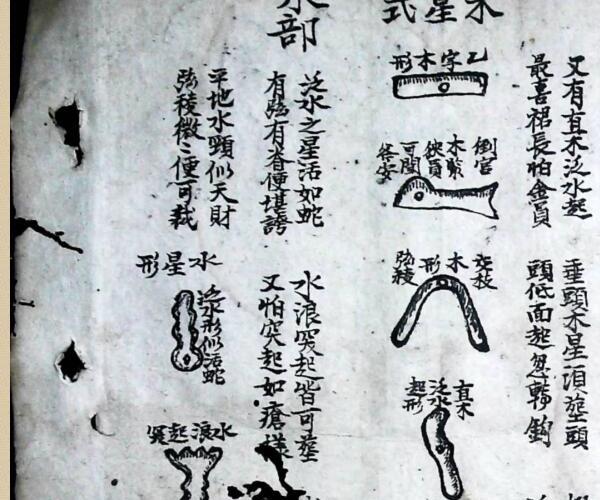 木星式
又有直木泛水起
最喜裙長怕金員
垂頭木星須塟頭
頭低面起忽轉鈎
乙字木形
倒宮
木蔭
可開
木形
弦稜
直木
泛水
起形
水部
泛水之星活如蛇
有弦有脊便堪誇
水浪突起皆可塟
又怕突起如瘡樣
平地水顆似天財
弦稜微微便可裁
水星形
泛水形似活蛇
水浪起